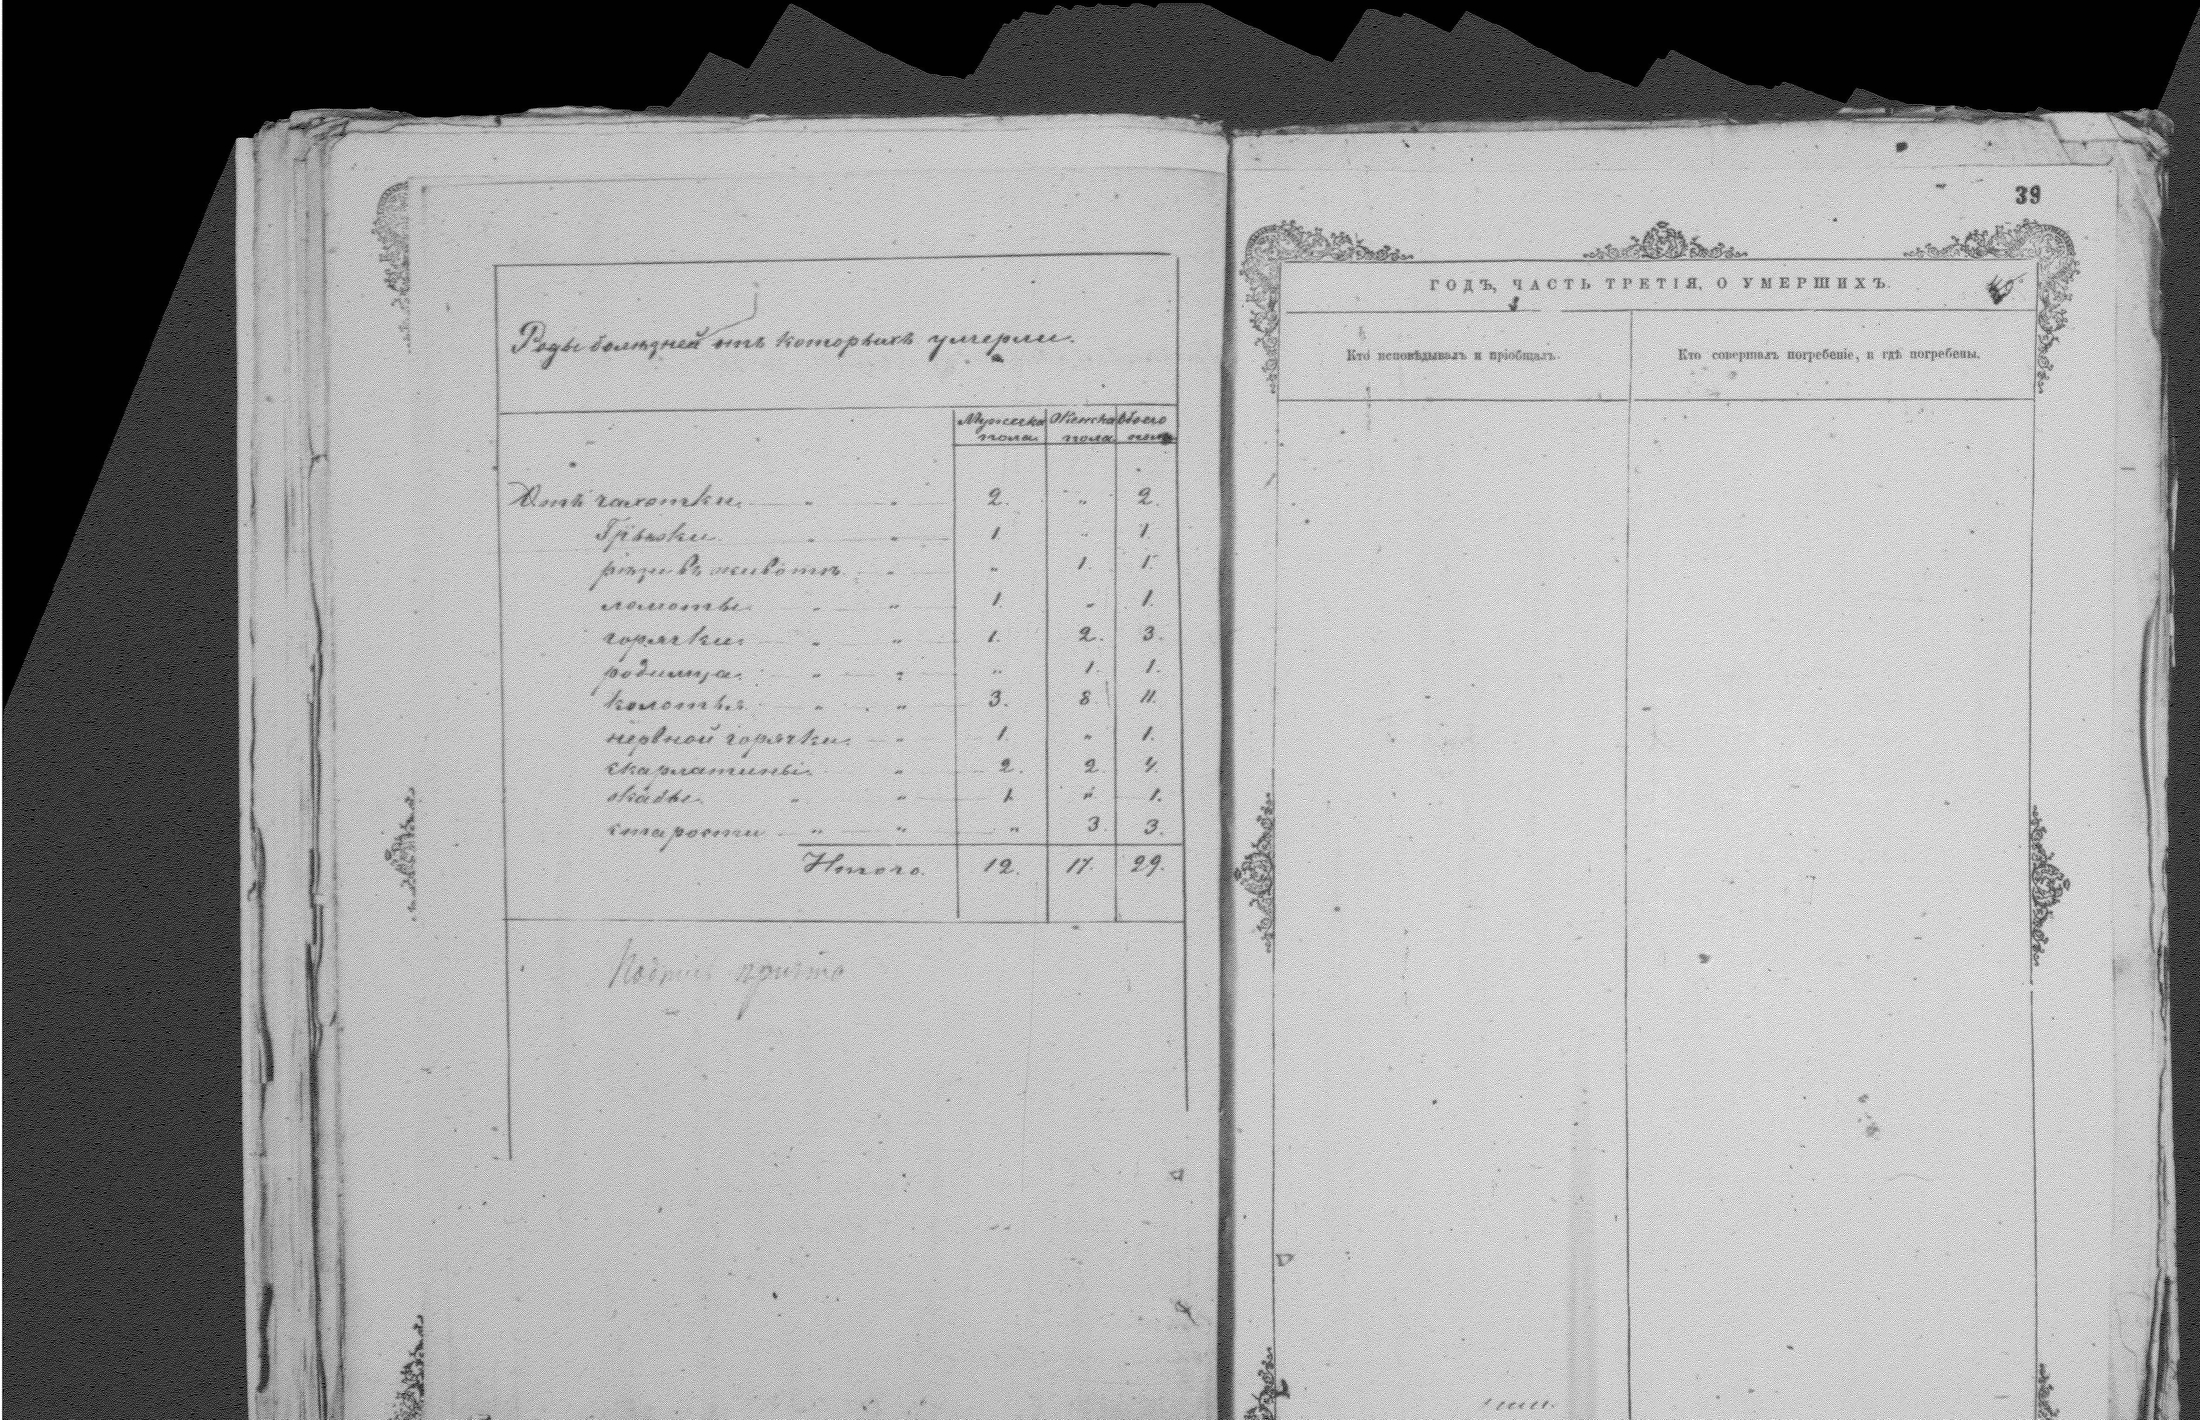 Роды болѣзней отъ которыхъ умерли.
Мужска пола Женска пола Обоего пола
Отъ чахотки. „ „ 2. „ 2.
Грыжи. „ „ 1 „ 1.
рѣзи въ животѣ. „ „ 1. 1.
ломоты. „ „ 1. „ 1.
горячки. „ „ 1. 2. 3.
родимца. „ „ „ 1. 1.
колотья. „ „ 3. 8. 11.
нервной горячки. „ 1. „ 1.
скарлатины. „ 2. 2. 4.
жабы. „ „ 1. „ 1.
старости „ „ „ 3. 3.
Итого. 12. 17. 29.
39
ГОДЪ, ЧАСТЬ ТРЕТІЯ, О УМЕРШИХЪ.
Кто исповѣдывалъ и пріобщалъ.
Кто совершалъ погребеніе, и гдѣ погребены.